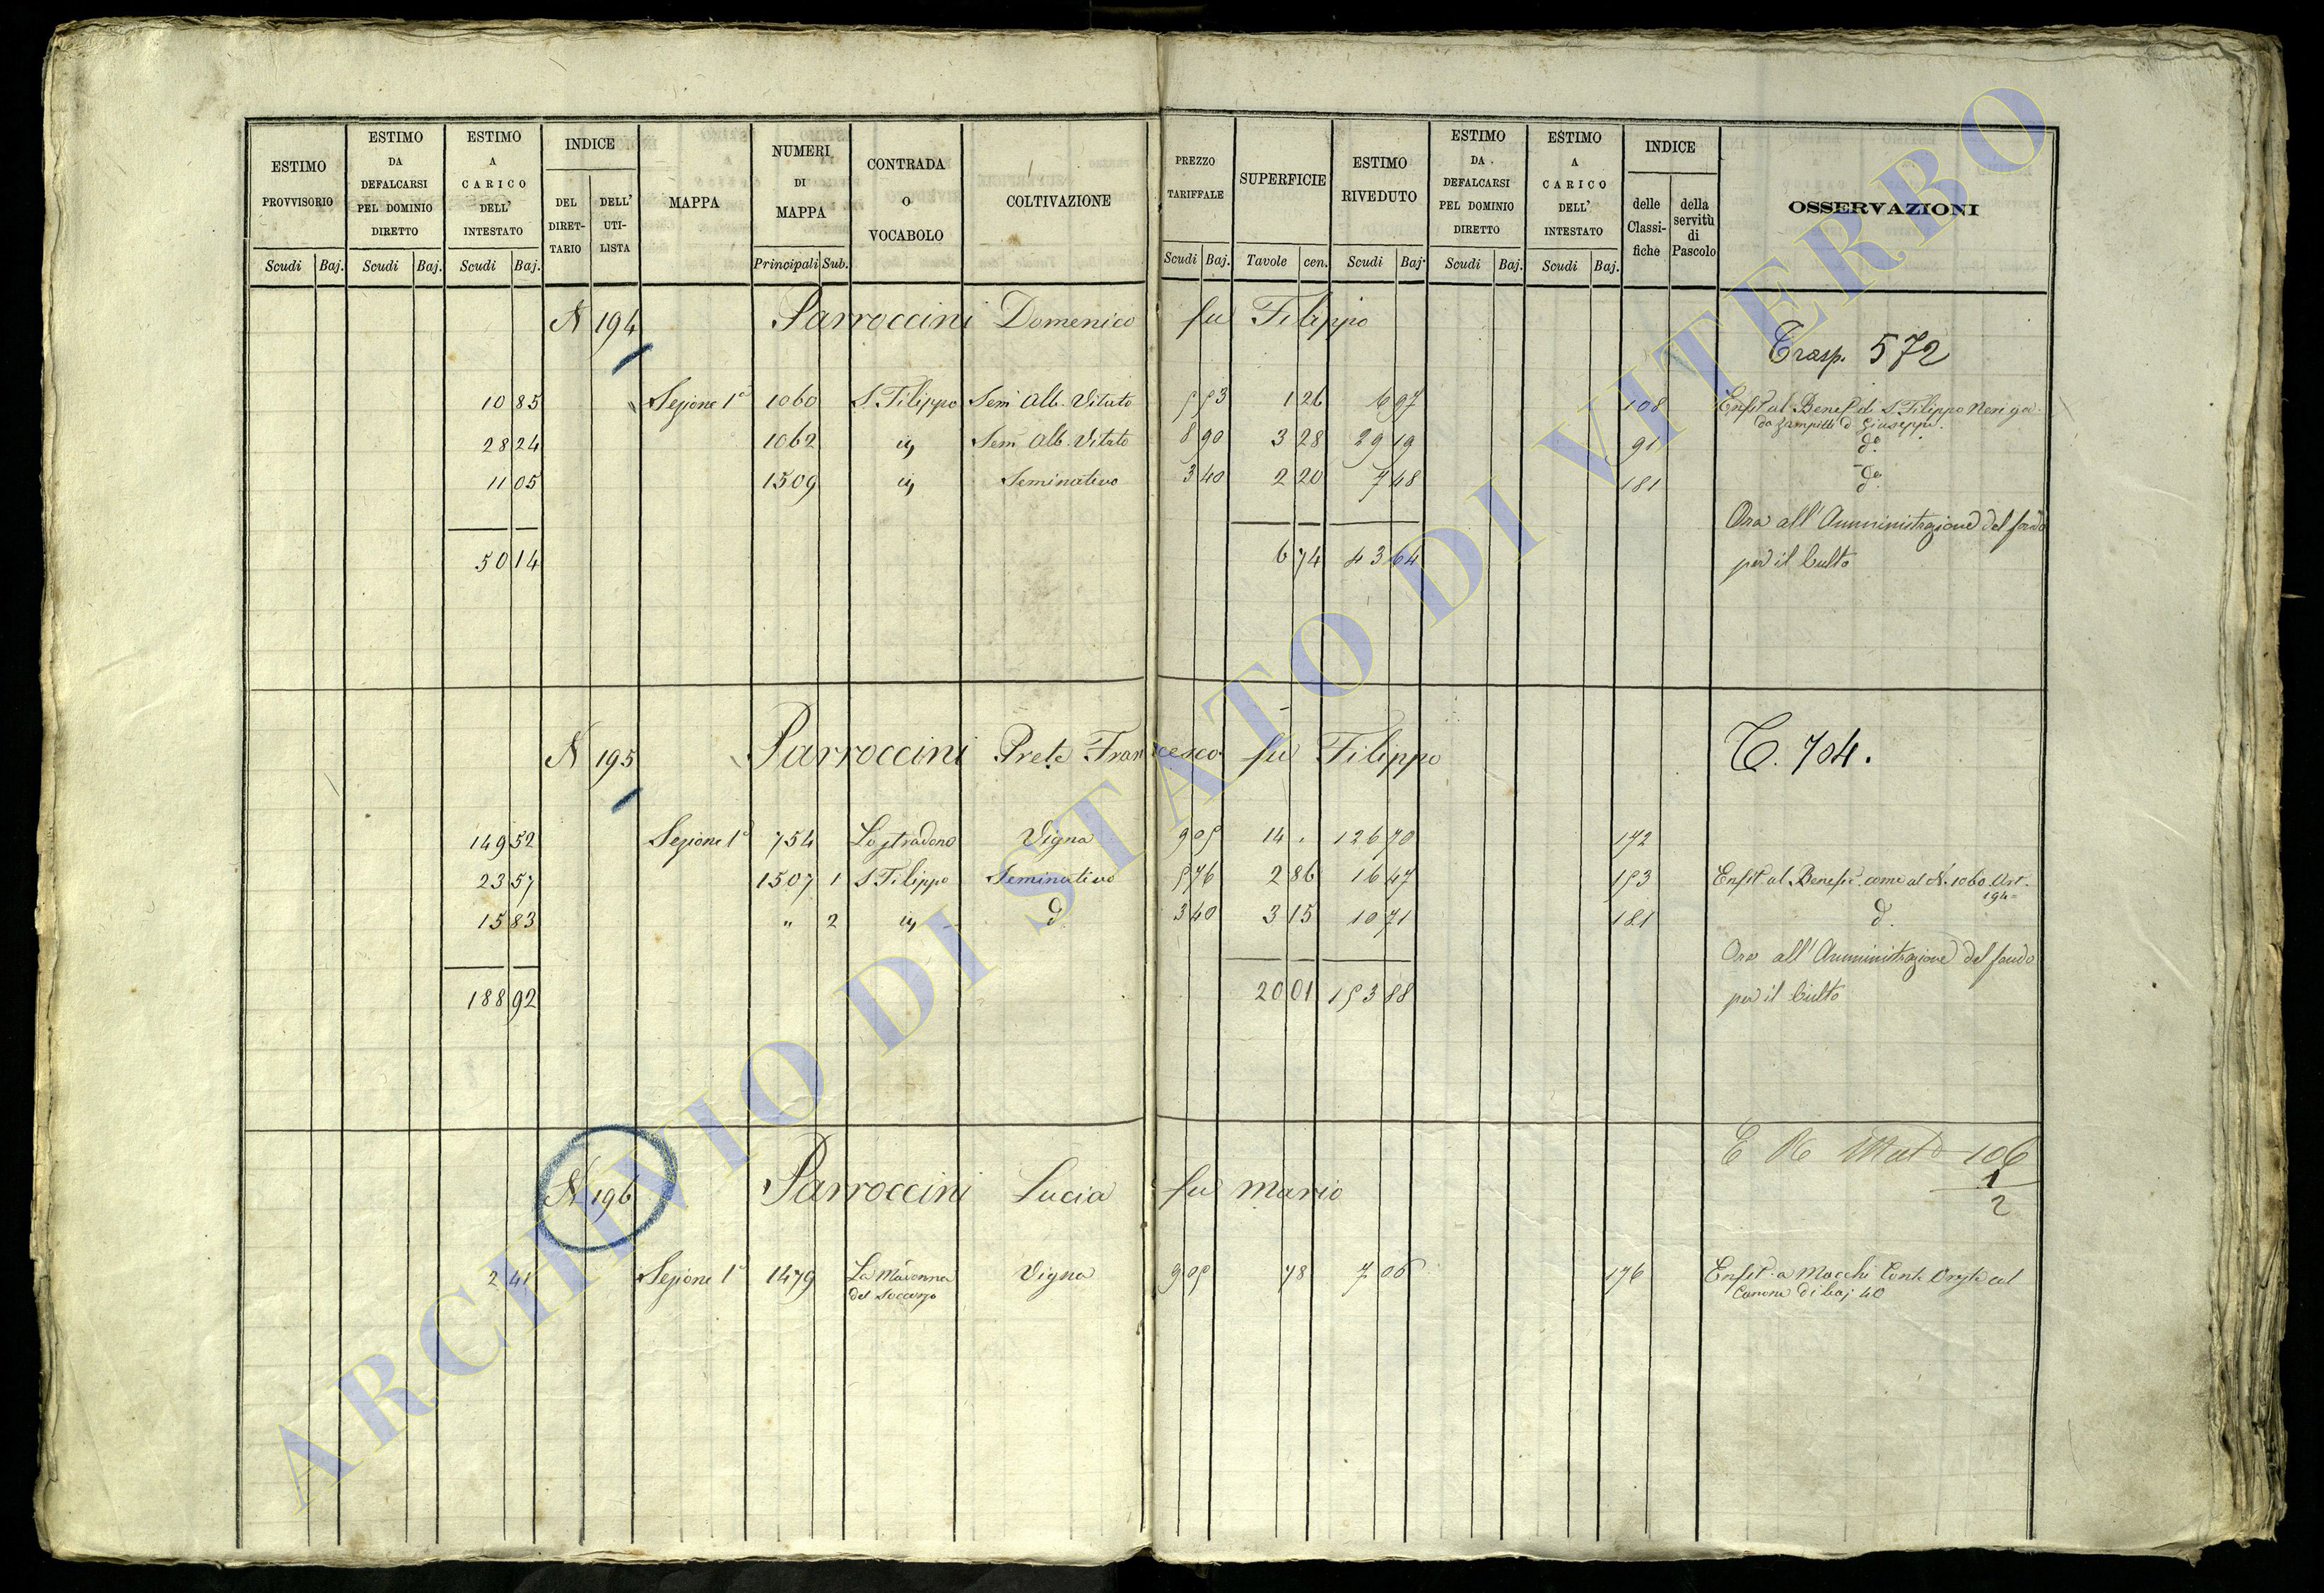 ESTIMO PROVVISORIO | ESTIMO DA DEFALCARSI PEL DOMINIO DIRETTO | ESTIMO A CARICO DELL' INTESTATO | INDICE DEL DIRET-TARIO | DELL' UTI-LISTA | MAPPA | NUMERI DI MAPPA | CONTRADA O VOCABOLO | COLTIVAZIONE | PREZZO TARIFFALE | SUPERFICIE | ESTIMO RIVEDUTO | ESTIMO DA DEFALCARSI PEL DOMINIO DIRETTO | ESTIMO A CARICO DELL' INTESTATO | INDICE delle Classi-fiche | della servitù di Pascolo | OSSERVAZIONI
Scudi Baj. Scudi Baj. Scudi Baj. Principali Sub. Scudi Baj. Tavole cen. Scudi Baj. Scudi Baj. Scudi Baj.
N 194 Parroccini Domenico fu Filippo
Trasp. 572
10 85 Sezione 1a 1060 S. Filippo Sem Alb. Vitato 5 53 1 26 6 97 108 Enfit al Benef di S. Filippo Neri go-
duto Zampilli D Giuseppe.
28 24 1062 id Sem Alb. Vitato 8 90 3 28 29 19 91 do
11 05 1509 id Seminativo 3 40 2 20 7 48 181 do
Ora all' Amministrazione del fondo
50 14 6 74 43 64 per il Culto
N 195 Parroccini Prete Francesco fu Filippo T. 704.
149 52 Sezione 1a 754 Lo stradone Vigna 9 05 14 . 126 70 172
23 57 1507 1 S Filippo Seminativo 5 76 2 86 16 47 153 Enfit al Benefic. come al N. 1060 Art.
194=
15 83 " 2 id d 3 40 3 15 10 71 181 d.
Ora all' Amministrazione del fondo
188 92 20 01 153 88 per il Culto
106
1
2
N 196 Parroccini Lucia fu Mario
2 41 Sezione 1a 1479 La Madonna Vigna 9 05 78 7 06 176 Enfit. a Macchi Conte Oreste col
del Soccorso Canone di baj 40
ARCHIVIO DI STATO DI VITERBO